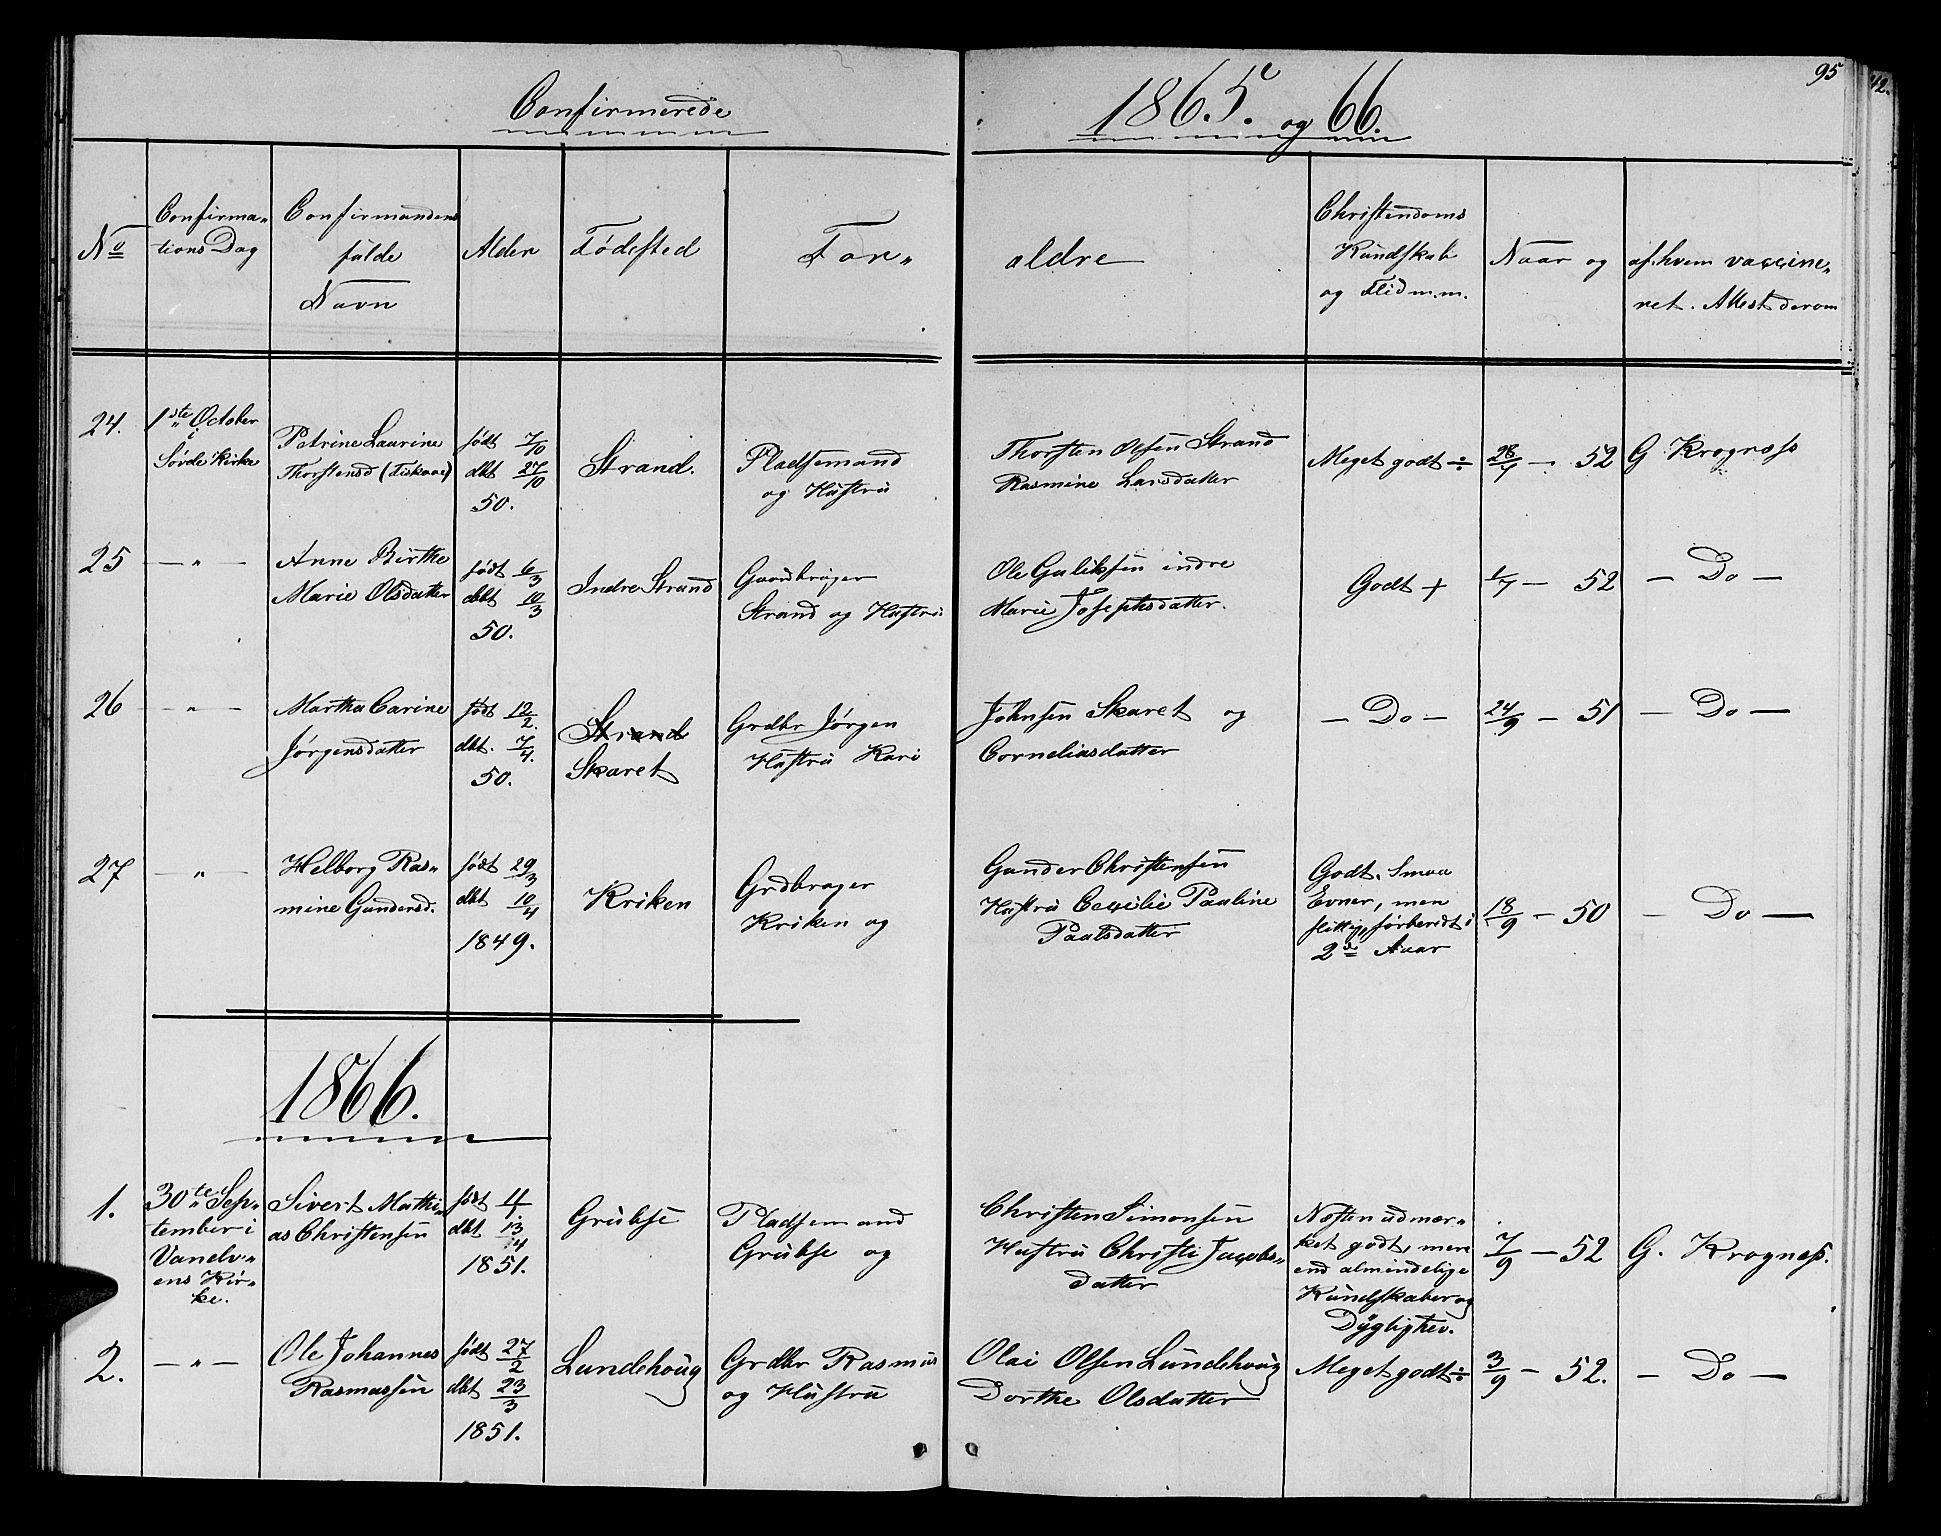 Confirmerede 1865. og 66. 95
No
Confirma„
tions Dag
Confirmandens
fulde
Navn
Alder
Födested
For„
ældre
Christendoms
Kundskab
og Flid m.m.
Naar og
af hvem vaccine„
ret. Attest derom
24.
1ste October
i
Sövde Kirke
Petrine Laurine
Thorstensd (Fiskaae)
födt 7/10
dbt 27/10
50.
Strand.
Pladsemand
og Hustru
Thorsten Olsen Strand
Rasmine Larsdatter
Meget godt ÷
28/7 - 52
G Krogness
25
— „ —
Anne Birthe
Marie Olsdatter
födt 6/3
dbt 10/3
50.
Indre Strand
Gaardbruger
Strand og Hustru
Ole Guliksen indre
Marie Josephsdatter.
Godt +
1/7 - 52
— Do —
26
— „ —
Martha Carine
Jørgensdatter
födt 12/2.
dbt. 7/4.
50.
Strand
Skaret
Grdbr Jørgen
Hustru Kari
Johnsen Skaret og
Corneliasdatter
— Do —
24/9 - 51
— Do —
27
— „ —
Helborg Ras„
mine Gundersd.
födt 29/3
dbt 10/4
1849.
Kriken
Grdbruger
Kriken og
Gunder Christensen
Hustru Cecilie Pauline
Paalsdatter
Godt. Smaa
Evner, men
flittig, forberedt i
2de Aaar
18/9 - 50
— Do —
1866.
1.
30te Sep„
tember i
Vanelv„
ens Kir„
ke.
Sivert Mathi„
as Christensen
födt 4/4
dbt 13/4
1851.
Grubse
Pladsemand
Grubse og
Christen Simonsen
Hustru Christi Jacobs„
datter
Næsten udmær„
ket godt, mere
end almindelige
Kundskaber og
Dygtighed.
7/9 - 52
G. Krogness.
2.
— „ —
Ole Johannes
Rasmussen
födt 27/2
dbt 23/3
1851.
Lundehoug
Grdbr Rasmus
og Hustru
Olai Olsen Lundehoug
Dorthe Olsdatter
Meget godt ÷
3/9 - 52.
— Do —